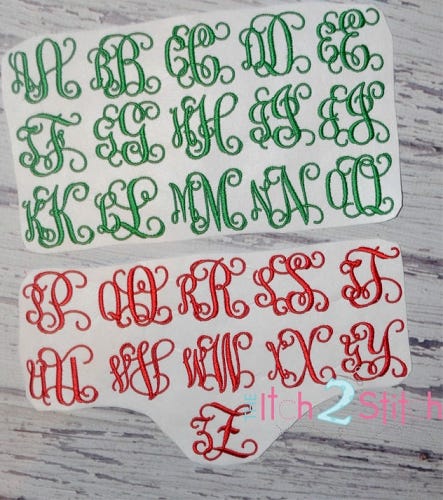 AA BB CC DD EE
FF GG HH II JJ
KK LL MM NN OO
PP QQ RR SS TT
UU VV WW XX YY
ZZ
THE Itch 2 Stitch